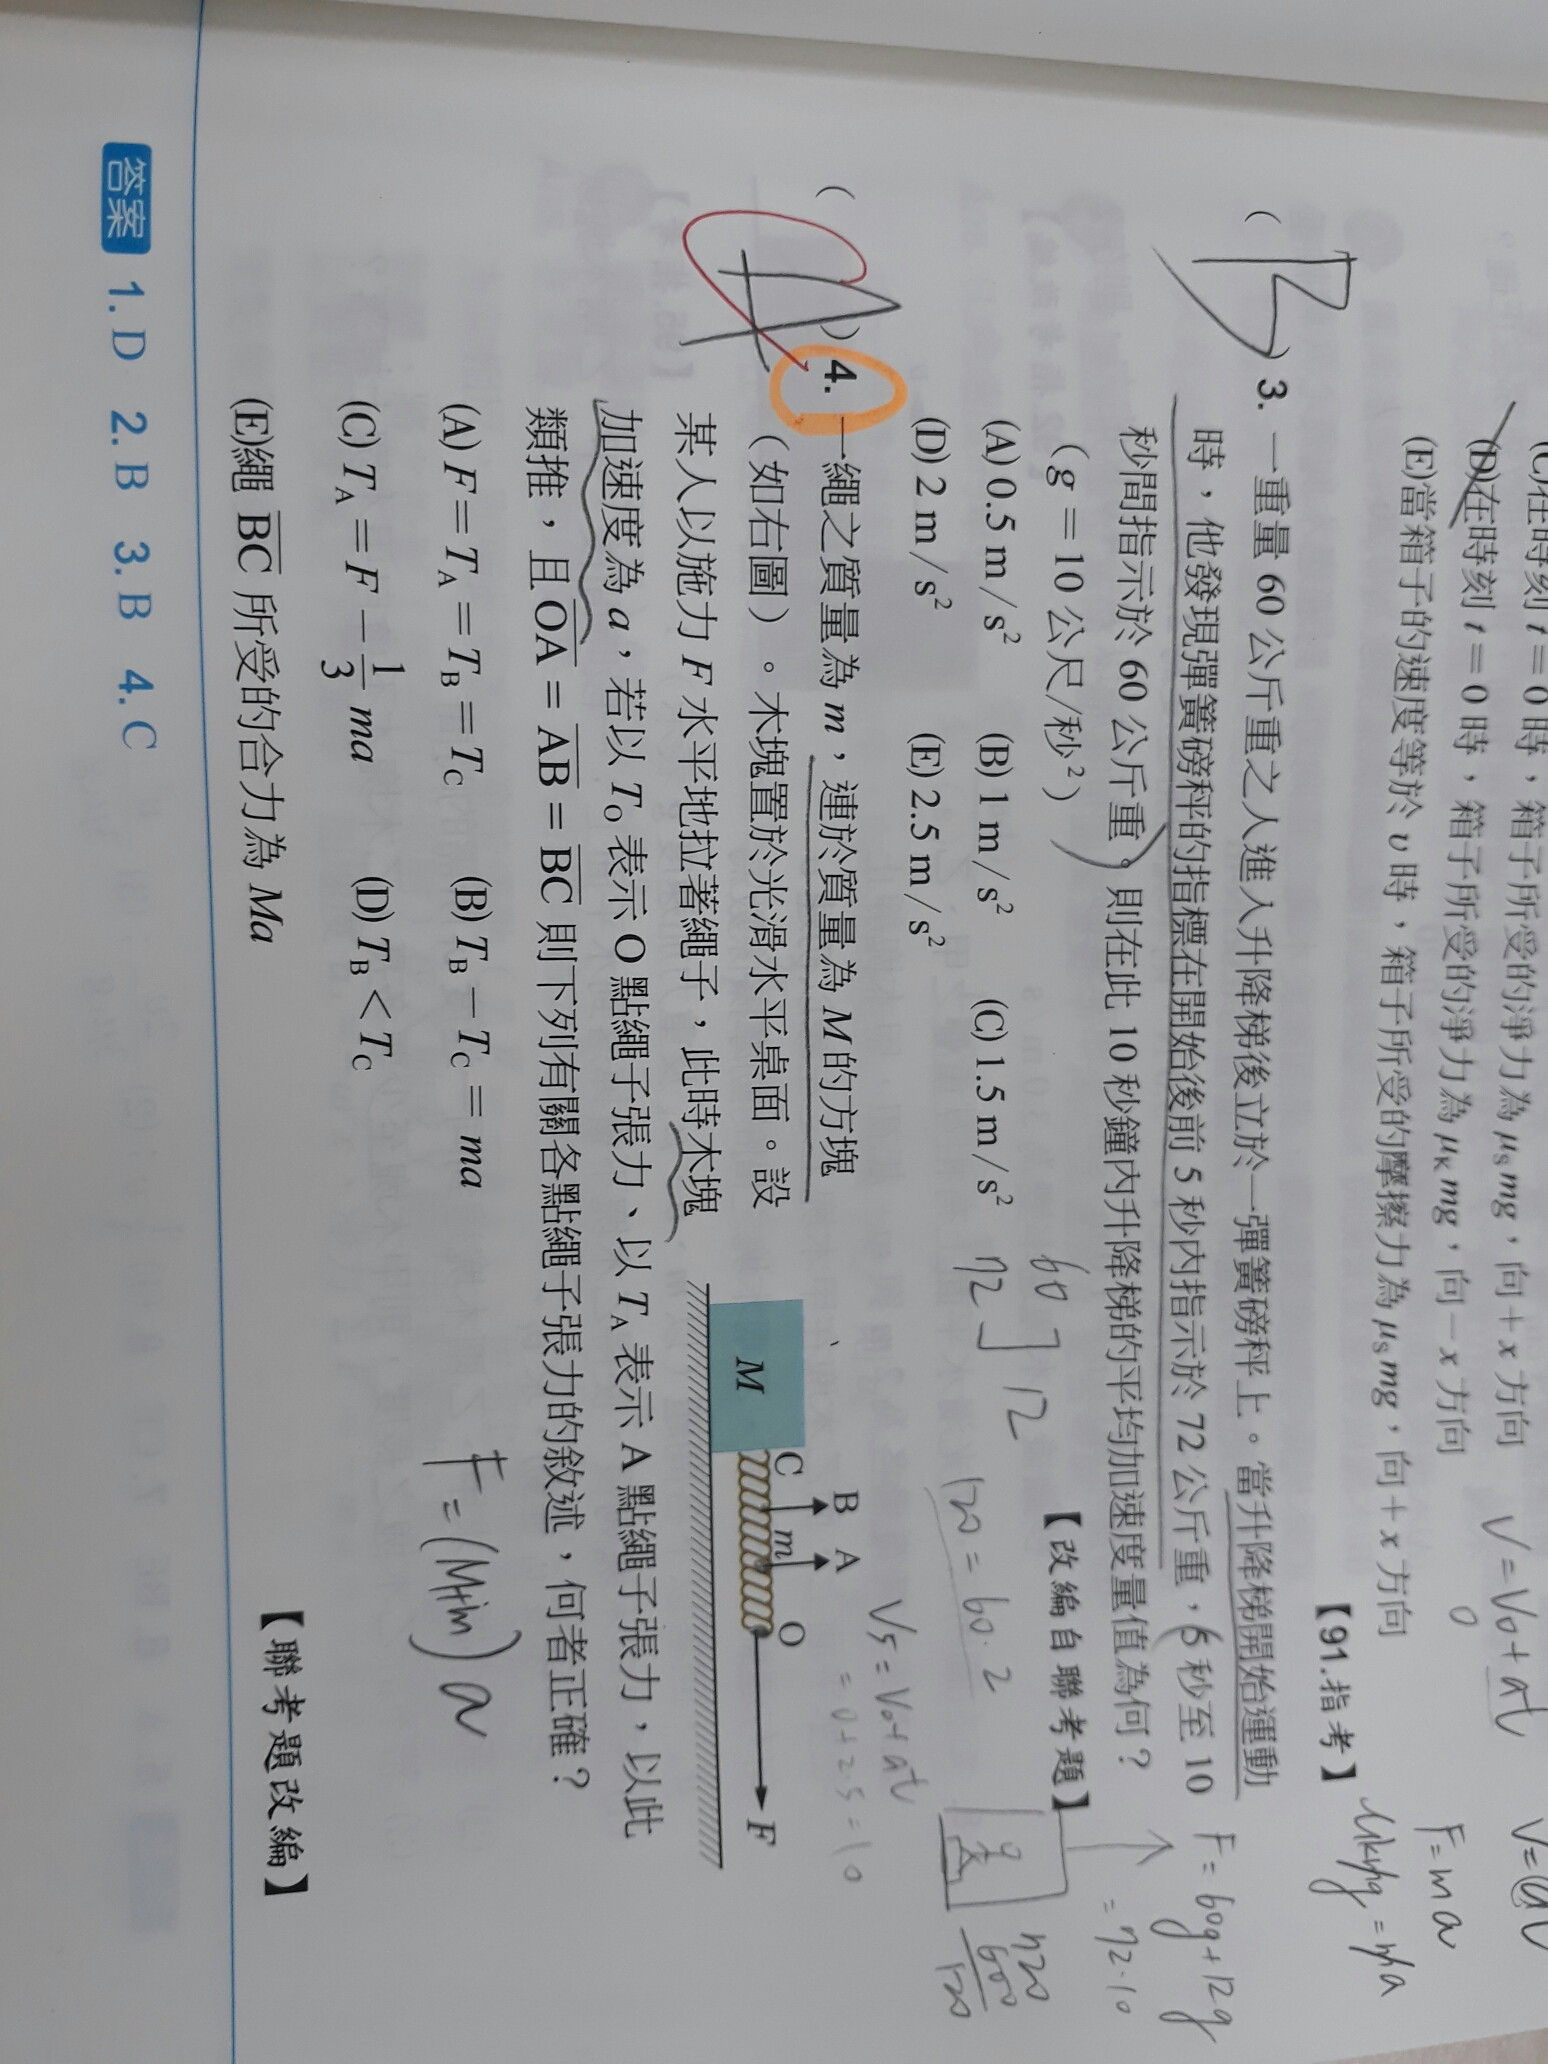 (D)在時刻 t＝0 時，箱子所受的淨力為 μₖmg，向－x 方向
(E)當箱子的速度等於 υ 時，箱子所受的摩擦力為 μₛmg，向＋x 方向
【91.指考】
V=V₀+at
0
F=ma
( B ) 3. 一重量 60 公斤重之人進入升降梯後立於一彈簧磅秤上。當升降梯開始運動
時，他發現彈簧磅秤的指標在開始後前 5 秒內指示於 72 公斤重，5 秒至 10
秒間指示於 60 公斤重。則在此 10 秒鐘內升降梯的平均加速度量值為何？
(g＝10 公尺/秒²)
【改編自聯考題】
(A) 0.5 m/s² (B) 1 m/s² (C) 1.5 m/s²
(D) 2 m/s² (E) 2.5 m/s²
60
72
12
120=60·2
F=60g+12g
=72·10
720
600
120
V₅=V₀+at
=0+2·5=10
( A ) 4. 一繩之質量為 m，連於質量為 M 的方塊
（如右圖）。木塊置於光滑水平桌面。設
某人以施力 F 水平地拉著繩子，此時木塊
加速度為 a，若以 T_O 表示 O 點繩子張力、以 T_A 表示 A 點繩子張力，以此
類推，且 O̅A̅＝A̅B̅＝B̅C̅ 則下列有關各點繩子張力的敘述，何者正確？
(A) F＝T_A＝T_B＝T_C (B) T_B－T_C＝ma
(C) T_A＝F－1/3 ma (D) T_B＜T_C
(E)繩 B̅C̅ 所受的合力為 Ma
【聯考題改編】
B A
C m O
M
F
F=(M+m)a
答案 1. D 2. B 3. B 4. C